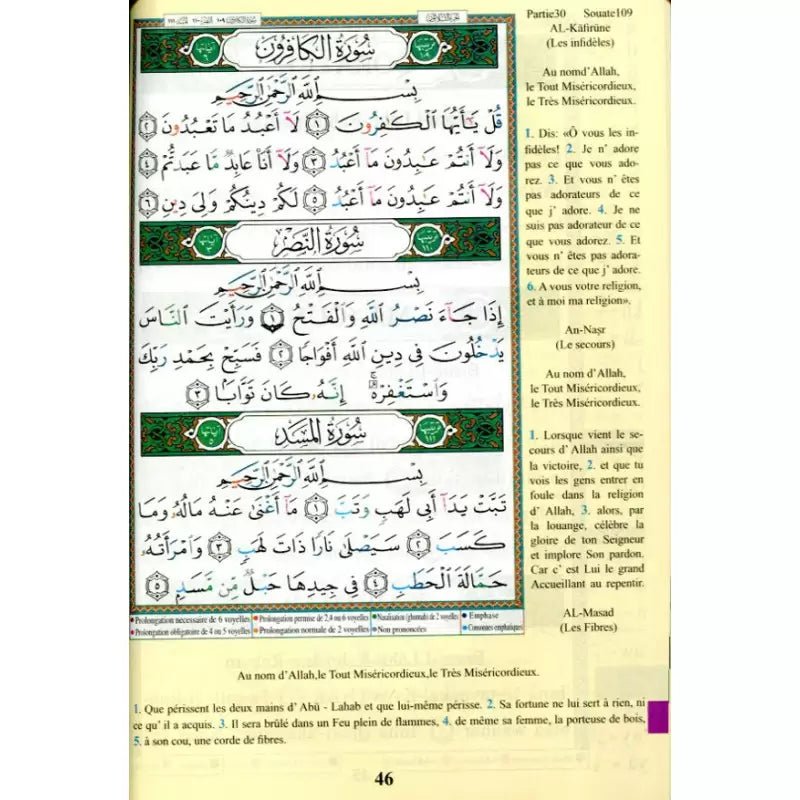 سورة الكافرون
بِسْمِ اللَّهِ الرَّحْمَٰنِ الرَّحِيمِ
قُلْ يَٰٓأَيُّهَا ٱلْكَٰفِرُونَ ١ لَآ أَعْبُدُ مَا تَعْبُدُونَ ٢
وَلَآ أَنتُمْ عَٰبِدُونَ مَآ أَعْبُدُ ٣ وَلَآ أَنَا۠ عَابِدٌ مَّا عَبَدتُّمْ ٤
وَلَآ أَنتُمْ عَٰبِدُونَ مَآ أَعْبُدُ ٥ لَكُمْ دِينُكُمْ وَلِىَ دِينِ ٦
سورة النصر
بِسْمِ اللَّهِ الرَّحْمَٰنِ الرَّحِيمِ
إِذَا جَآءَ نَصْرُ ٱللَّهِ وَٱلْفَتْحُ ١ وَرَأَيْتَ ٱلنَّاسَ
يَدْخُلُونَ فِى دِينِ ٱللَّهِ أَفْوَاجًا ٢ فَسَبِّحْ بِحَمْدِ رَبِّكَ
وَٱسْتَغْفِرْهُ ۚ إِنَّهُۥ كَانَ تَوَّابًۢا ٣
سورة المسد
بِسْمِ اللَّهِ الرَّحْمَٰنِ الرَّحِيمِ
تَبَّتْ يَدَآ أَبِى لَهَبٍ وَتَبَّ ١ مَآ أَغْنَىٰ عَنْهُ مَالُهُۥ وَمَا
كَسَبَ ٢ سَيَصْلَىٰ نَارًا ذَاتَ لَهَبٍ ٣ وَٱمْرَأَتُهُۥ
حَمَّالَةَ ٱلْحَطَبِ ٤ فِى جِيدِهَا حَبْلٌ مِّن مَّسَدٍۭ ٥
Prolongation nécessaire de 6 voyelles Prolongation permise de 2,4 ou 6 voyelles Nasalisation (ghunnah) de 2 voyelles Emphase
Prolongation obligatoire de 4 ou 5 voyelles Prolongation normale de 2 voyelles Non prononcées Consonnes emphatiques
Partie30 Souate109
AL-Kāfirūne
(Les infidèles)
Au nomd'Allah,
le Tout Miséricordieux,
le Très Miséricordieux.
1. Dis: «Ô vous les in-
fidèles! 2. Je n' adore
pas ce que vous ado-
rez. 3. Et vous n' êtes
pas adorateurs de ce
que j' adore. 4. Je ne
suis pas adorateur de ce
que vous adorez. 5. Et
vous n' êtes pas adora-
teurs de ce que j' adore.
6. A vous votre religion,
et à moi ma religion».
An-Naṣr
(Le secours)
Au nom d'Allah,
le Tout Miséricordieux,
le Très Miséricordieux.
1. Lorsque vient le se-
cours d' Allah ainsi que
la victoire, 2. et que tu
vois les gens entrer en
foule dans la religion
d' Allah, 3. alors, par
la louange, célèbre la
gloire de ton Seigneur
et implore Son pardon.
Car c' est Lui le grand
Accueillant au repentir.
AL-Masad
(Les Fibres)
Au nom d'Allah,le Tout Miséricordieux,le Très Miséricordieux.
1. Que périssent les deux mains d' Abū - Lahab et que lui-même périsse. 2. Sa fortune ne lui sert à rien, ni
ce qu' il a acquis. 3. Il sera brûlé dans un Feu plein de flammes, 4. de même sa femme, la porteuse de bois,
5. à son cou, une corde de fibres.
46